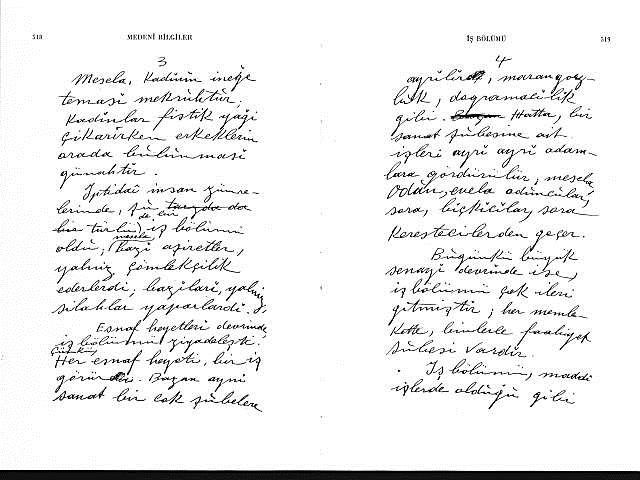 518 MEDENÎ BİLGİLER
3
Mesela, Kadının ineğe
teması mekruhtur;
Kadınlar fıstık yağı
çıkarırken erkeklerin
orada bulunması
günahtır.
İptidaî insan zümre-
lerinde, şu tarzda da
de, bir
bir türlü, iş bölümü
mesela
oldu; bazı aşiretler,
yalnız çömlekçilik
ederlerdi; bazıları, yalnız
silahlar yaparlardı.
Esnaf heyetleri devrinde,
iş bölümü ziyadeleşti.
Çünkü,
Her esnaf heyeti, bir iş
görür. Bazan ayni
sanat bir çok şubelere
İŞ BÖLÜMÜ 519
4
ayrılır, marangoz-
luk, doğramacılık
gibi. Hatta, bir
sanat şubesine ait
işleri ayrı ayrı adam-
lara gördürülür; mesela
Odun, evela oduncular,
sora, bıçkıcılar, sora
Kerestecilerden geçer.
Bugünkü büyük
senayi devrinde ise,
iş bölümü çok ileri
gitmiştir; her memle-
kette, binlerle faaliyet
şubesi vardır.
İş bölümü, maddî
işlerde olduğu gibi